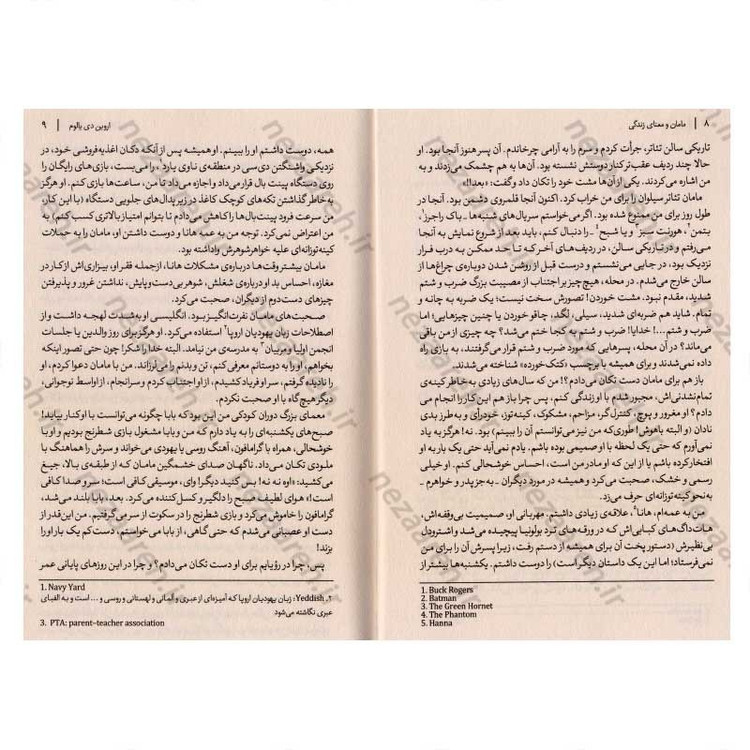 ۸ | مامان و معنای زندگی
تاریکی سالن تئاتر، جرأت کردم و سرم را به آرامی چرخاندم. آن پسر هنوز آنجا بود. او
حالا چند ردیف عقب‌تر کنار دوستش نشسته بود. آن‌ها به هم چشمک می‌زدند و به
من اشاره می‌کردند. یکی از آن‌ها مشت خود را تکان داد و گفت: «بعداً!»
مامان تئاتر سیلوان را برای من خراب کرد. اکنون آنجا قلمروی دشمن بود. آنجا در
طول روز برای من ممنوع شده بود. اگر می‌خواستم سریال‌های شنبه‌ها ـ باک راجرز۱،
بتمن۲، هورنت سبز۳ و یا شبح۴ ـ را دنبال کنم، باید بعد از شروع نمایش به آنجا
می‌رفتم و در تاریکی سالن، در ردیف‌های آخر که تا حد ممکن به درب فرار
نزدیک بود، در جایی می‌نشستم و درست قبل از روشن شدن دوباره‌ی چراغ‌ها از
سالن خارج می‌شدم. در محله، هیچ چیز بر اجتناب از مصیبت بزرگ ضرب و شتم
شدید، مقدم نبود. مشت خوردن؟ تصورش سخت نیست؛ یک ضربه به چانه و
تمام. شاید هم ضربه‌ای شدید، سیلی، لگد، چاقو خوردن یا چنین چیزهایی؛ اما
ضرب و شتم...! خدایا! ضرب و شتم به کجا ختم می‌شد؟ چه چیزی از من باقی
می‌ماند؟ در آن محله، پسرهایی که مورد ضرب و شتم قرار می‌گرفتند، به بازی راه
داده نمی‌شدند و برای همیشه با برچسب «کتک‌خورده» شناخته می‌شدند.
باز هم برای مامان دست تکان می‌دادم؟! من که سال‌های زیادی به خاطر کینه‌ی
تمام‌نشدنی‌اش، مجبور شدم با او زندگی کنم، پس چرا باز هم این کار را انجام می
دادم؟ او مغرور و پوچ، کنترل‌گر، مزاحم، مشکوک، کینه‌توز، خودرأی و به طرز بدی
نادان (و البته باهوش! طوری که من نیز می‌توانستم آن را ببینم) بود. نه! هرگز به یاد
نمی‌آورم که حتی یک لحظه با او صمیمی بوده باشم. یادم نمی‌آید حتی یک بار به او
افتخار کرده باشم یا از این که او مادر من است، احساس خوشحالی کنم. او خیلی
رسمی و خشک، صحبت می‌کرد و همیشه در مورد دیگران ـ به جز پدر و خواهرم ـ
به نحو کینه‌توزانه‌ای حرف می‌زد.
من به عمه‌ام، هانا۵، علاقه‌ی زیادی داشتم. مهربانی او، صمیمیت بی‌وقفه‌اش،
هات‌داگ‌های کبابی‌اش که در ورقه‌های گرد بولونیا پیچیده می‌شد و اشترودل
بی‌نظیرش (دستور پخت آن برای همیشه از دستم رفت، زیرا پسرش آن را برای من
نمی‌فرستاد؛ اما این یک داستان دیگر است) را دوست داشتم. یکشنبه‌ها بیشتر از
1. Buck Rogers
2. Batman
3. The Green Hornet
4. The Phantom
5. Hanna
اروین دی یالوم | ۹
همه، دوست داشتم او را ببینم. او همیشه پس از آنکه دکان اغذیه‌فروشی خود، در
نزدیکی واشنگتن دی‌سی در منطقه‌ی ناوی یارد۱، را می‌بست، بازی‌های رایگان را
روی دستگاه پینت بال قرار می‌داد و اجازه می‌داد تا من، ساعت‌ها بازی کنم. او هرگز
به خاطر گذاشتن تکه‌های کوچک کاغذ در زیر پدال‌های جلویی دستگاه (با این کار،
من سرعت فرود پینت‌بال‌ها را کاهش می‌دادم تا بتوانم امتیاز بالاتری کسب کنم) به
من اعتراض نمی‌کرد. توجه من به عمه هانا و دوست داشتن او، مامان را به حملات
کینه‌توزانه‌ای علیه خواهرشوهرش واداشته بود.
مامان بیشتر وقت‌ها درباره‌ی مشکلات هانا، از جمله فقر او، بیزاری‌اش از کار در
مغازه، احساس بد او درباره‌ی شغلش، شوهر بی‌دست‌وپایش، نداشتن غرور و پذیرفتن
چیزهای دست دوم از دیگران، صحبت می‌کرد.
صحبت‌های مامان نفرت‌انگیز بود. انگلیسی او به‌شدت لهجه داشت و از
اصطلاحات زبان یهودیان اروپا۲ استفاده می‌کرد. او هرگز برای روز والدین یا جلسات
انجمن اولیا و مربیان۳ به مدرسه‌ی من نیامد. البته خدا را شکر! چون حتی تصور اینکه
بخواهم، او را به دوستانم معرفی کنم، تن و بدنم را می‌لرزاند. من با مامان دعوا کردم، او
را نادیده گرفتم، سر او فریاد کشیدم، از او اجتناب کردم و سرانجام، از اواسط نوجوانی،
دیگر هیچ‌گاه با او صحبت نکردم.
معمای بزرگ دوران کودکی من این بود که بابا چگونه می‌توانست با او کنار بیاید!
صبح‌های یکشنبه‌ای را به یاد دارم که من و بابا مشغول بازی شطرنج بودیم و او با
خوشحالی، همراه با گرامافون، آهنگ روسی یا یهودی می‌خواند و سرش را هماهنگ با
ملودی تکان می‌داد. ناگهان صدای خشمگین مامان که از طبقه‌ی بالا، جیغ
می‌کشید: «اوه نه نه! بس کنید دیگر! وای، موسیقی کافی است؛ سر و صدا کافی
است»! هوای لطیف صبح را دلگیر و کسل‌کننده می‌کرد. بعد، بابا بلند می‌شد،
گرامافون را خاموش می‌کرد و بازی شطرنج را در سکوت از سر می‌گرفتیم. من این‌قدر از
دست او عصبانی می‌شدم که حتی گاهی، از بابا می‌خواستم، دست کم یک بار او را
بزند!
پس، چرا در رؤیایم برای او دست تکان می‌دادم؟ و چرا در این روزهای پایانی عمر
1. Navy Yard
۲. Yeddish: زبان یهودیان اروپا که آمیزه‌ای از عبری و آلمانی و لهستانی و روسی و ... است و به الفبای
عبری نگاشته می‌شود
3. PTA: parent–teacher association
nezaareh.ir